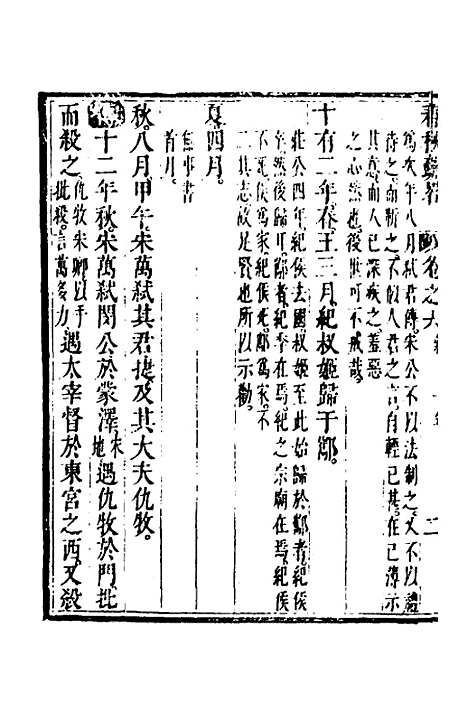 為次年八月弒君傳宋公不以法制之又不以禮
待之而靳之不似人君之言自輕已甚在已薄示
其意而人已深疾之羞惡
之心然也後世可不戒哉
十有二年春王三月紀叔姬歸于酅
莊公四年紀侯去國叔姬至此始歸於酅者紀侯
卒然後歸耳酅者紀季在焉紀之宗廟在焉紀侯
不死以為家紀侯死以酅為家不
二其志故足賢也所以示勸
夏四月
無事書
首月
秋八月甲午宋萬弒其君捷及其大夫仇牧
十二年秋宋萬弒閔公於蒙澤宋地遇仇牧於門批
而殺之仇牧宋卿以手批殺言萬多力遇太宰督於東宮之西又殺